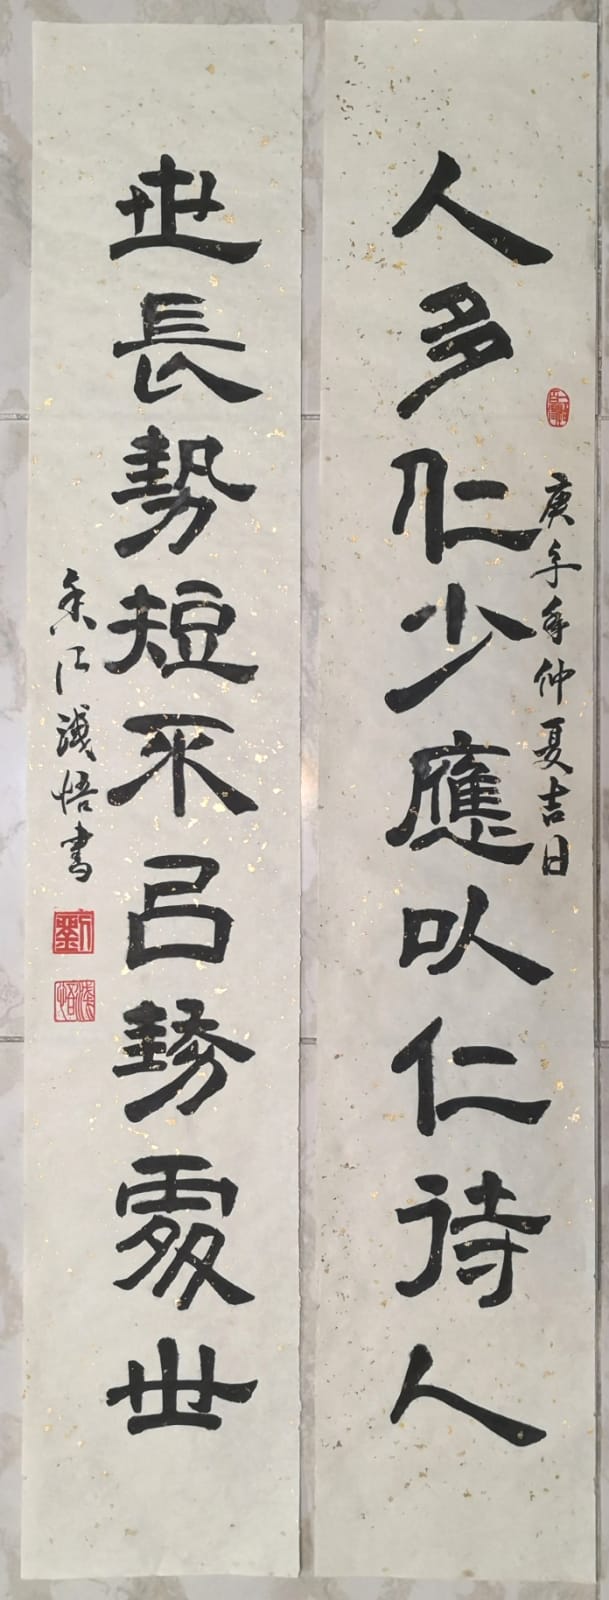 人多仁少應以仁待人
庚子年仲夏吉日
世長勢短不㠯勢處世
香江淺悟書